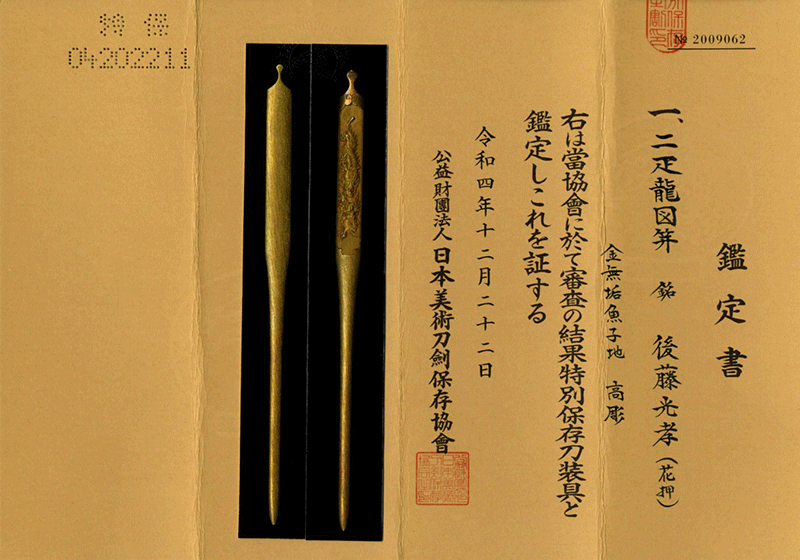 № 2009062
鑑定書
一、二疋龍図笄 銘 後藤光孝(花押)
金無垢魚子地 高彫
右は當協會に於て審査の結果特別保存刀装具と
鑑定しこれを証する
令和四年十二月二十二日
公益財團法人 日本美術刀劍保存協會
特保
04202211